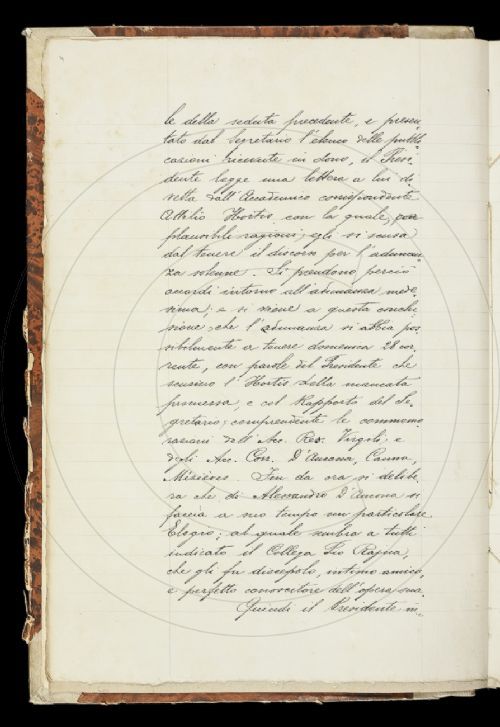 le della seduta precedente, e presen-
tato dal Segretario l'elenco delle pubbli-
cazioni ricevute in dono, il Presi-
dente legge una lettera a lui di-
retta dall'Accademico corrispondente
Attilio Hortis con la quale, per
plausibili ragioni, egli si scusa
dal tenere il discorso per l'adunan-
za solenne. Si prendono perciò
accordi intorno all'adunanza mede-
sima, e si viene a questa conclu-
sione, che l'adunanza si abbia pos-
sibilmente a tenere domenica 28 cor-
rente, con parole del Presidente che
scusino l'Hortis della mancata
promessa, e col Rapporto del Se-
gretario, comprendente le commemo-
razioni dell'Acc. Res. Virgili, e
degli Acc. Corr. D'Ancona, Canna,
Fin da ora si delibe-
ra che di Alessandro D'Ancona si
faccia a suo tempo un particolare
Elogio; al quale sembra a tutti
indicato il Collega Pio Rajna,
che gli fu discepolo, intimo amico,
e perfetto conoscitore dell'opera sua.
Quindi il Presidente in-